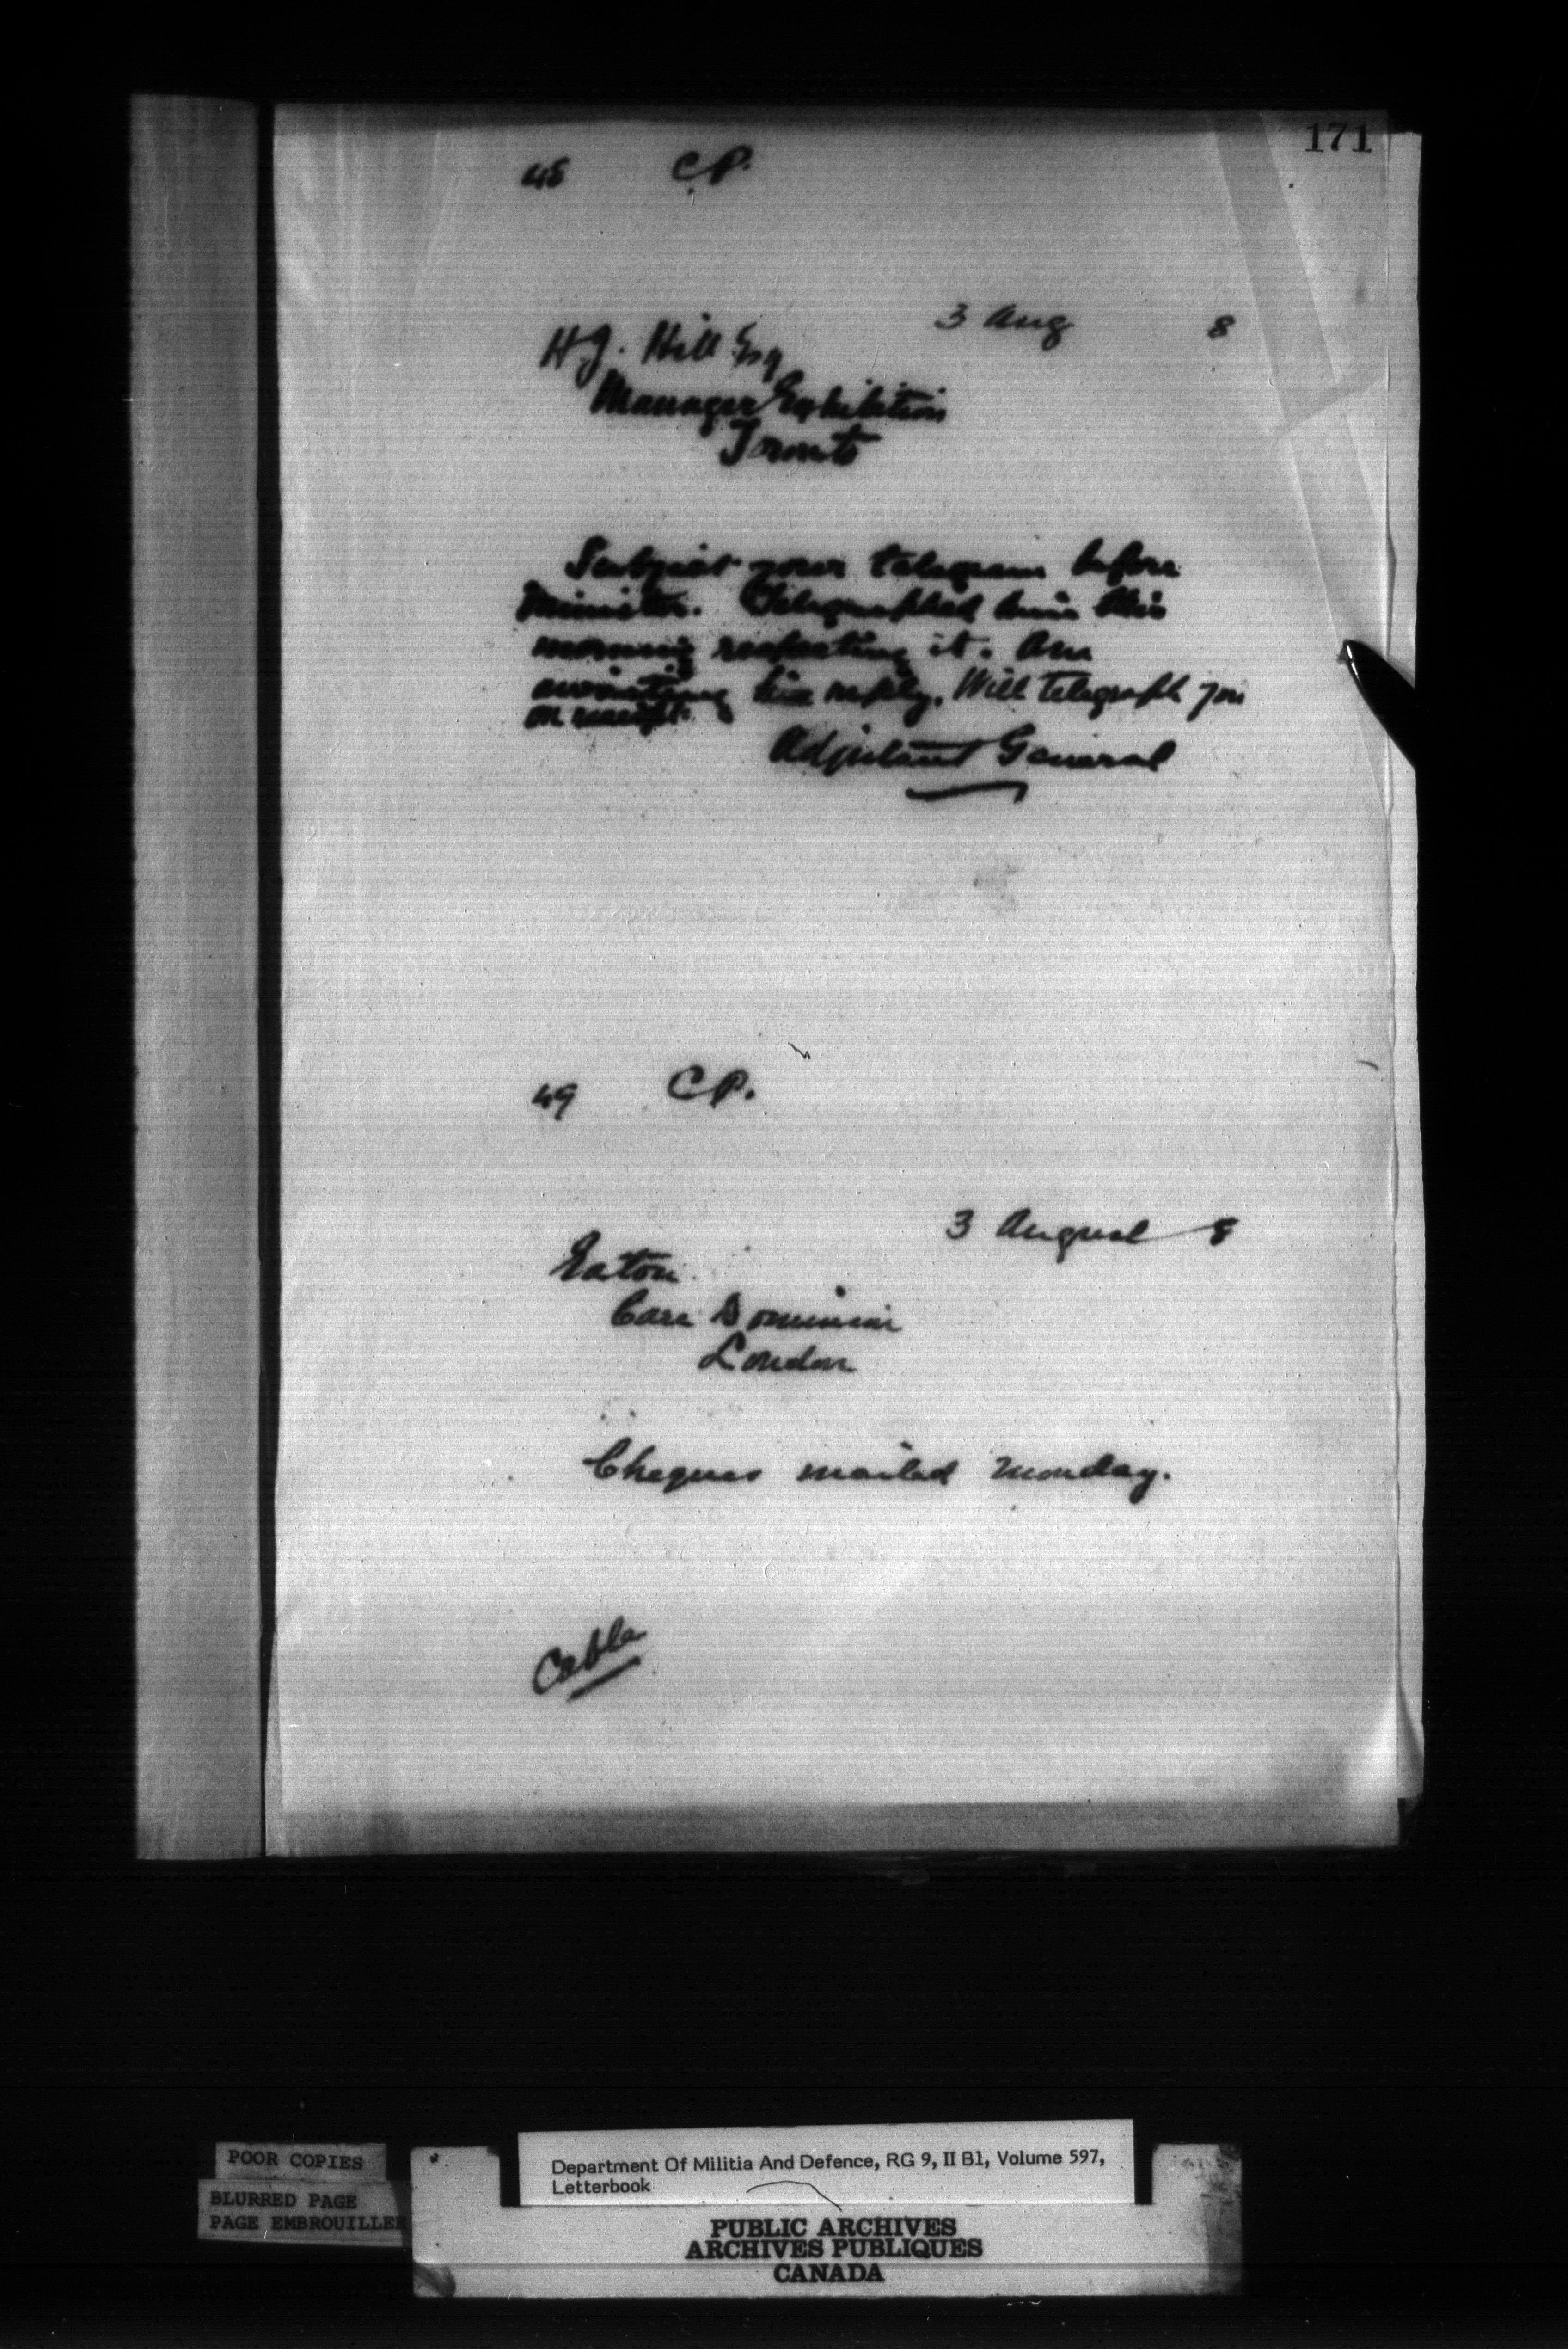 171
48 CP.
3 Aug 8
H.J. Hill Esq
Manager Exhibition
Toronto
Subject your telegram before
Minister. Telegraphed him this
morning respecting it. Am
awaiting his reply. Will telegraph you
on receipt.
Adjutant General
49 CP.
3 August 8
Eaton
Care Dominion
London
Cheques mailed Monday.
Cable
POOR COPIES
BLURRED PAGE
PAGE EMBROUILLEE
Department Of Militia And Defence, RG 9, II B1, Volume 597,
Letterbook
PUBLIC ARCHIVES
ARCHIVES PUBLIQUES
CANADA